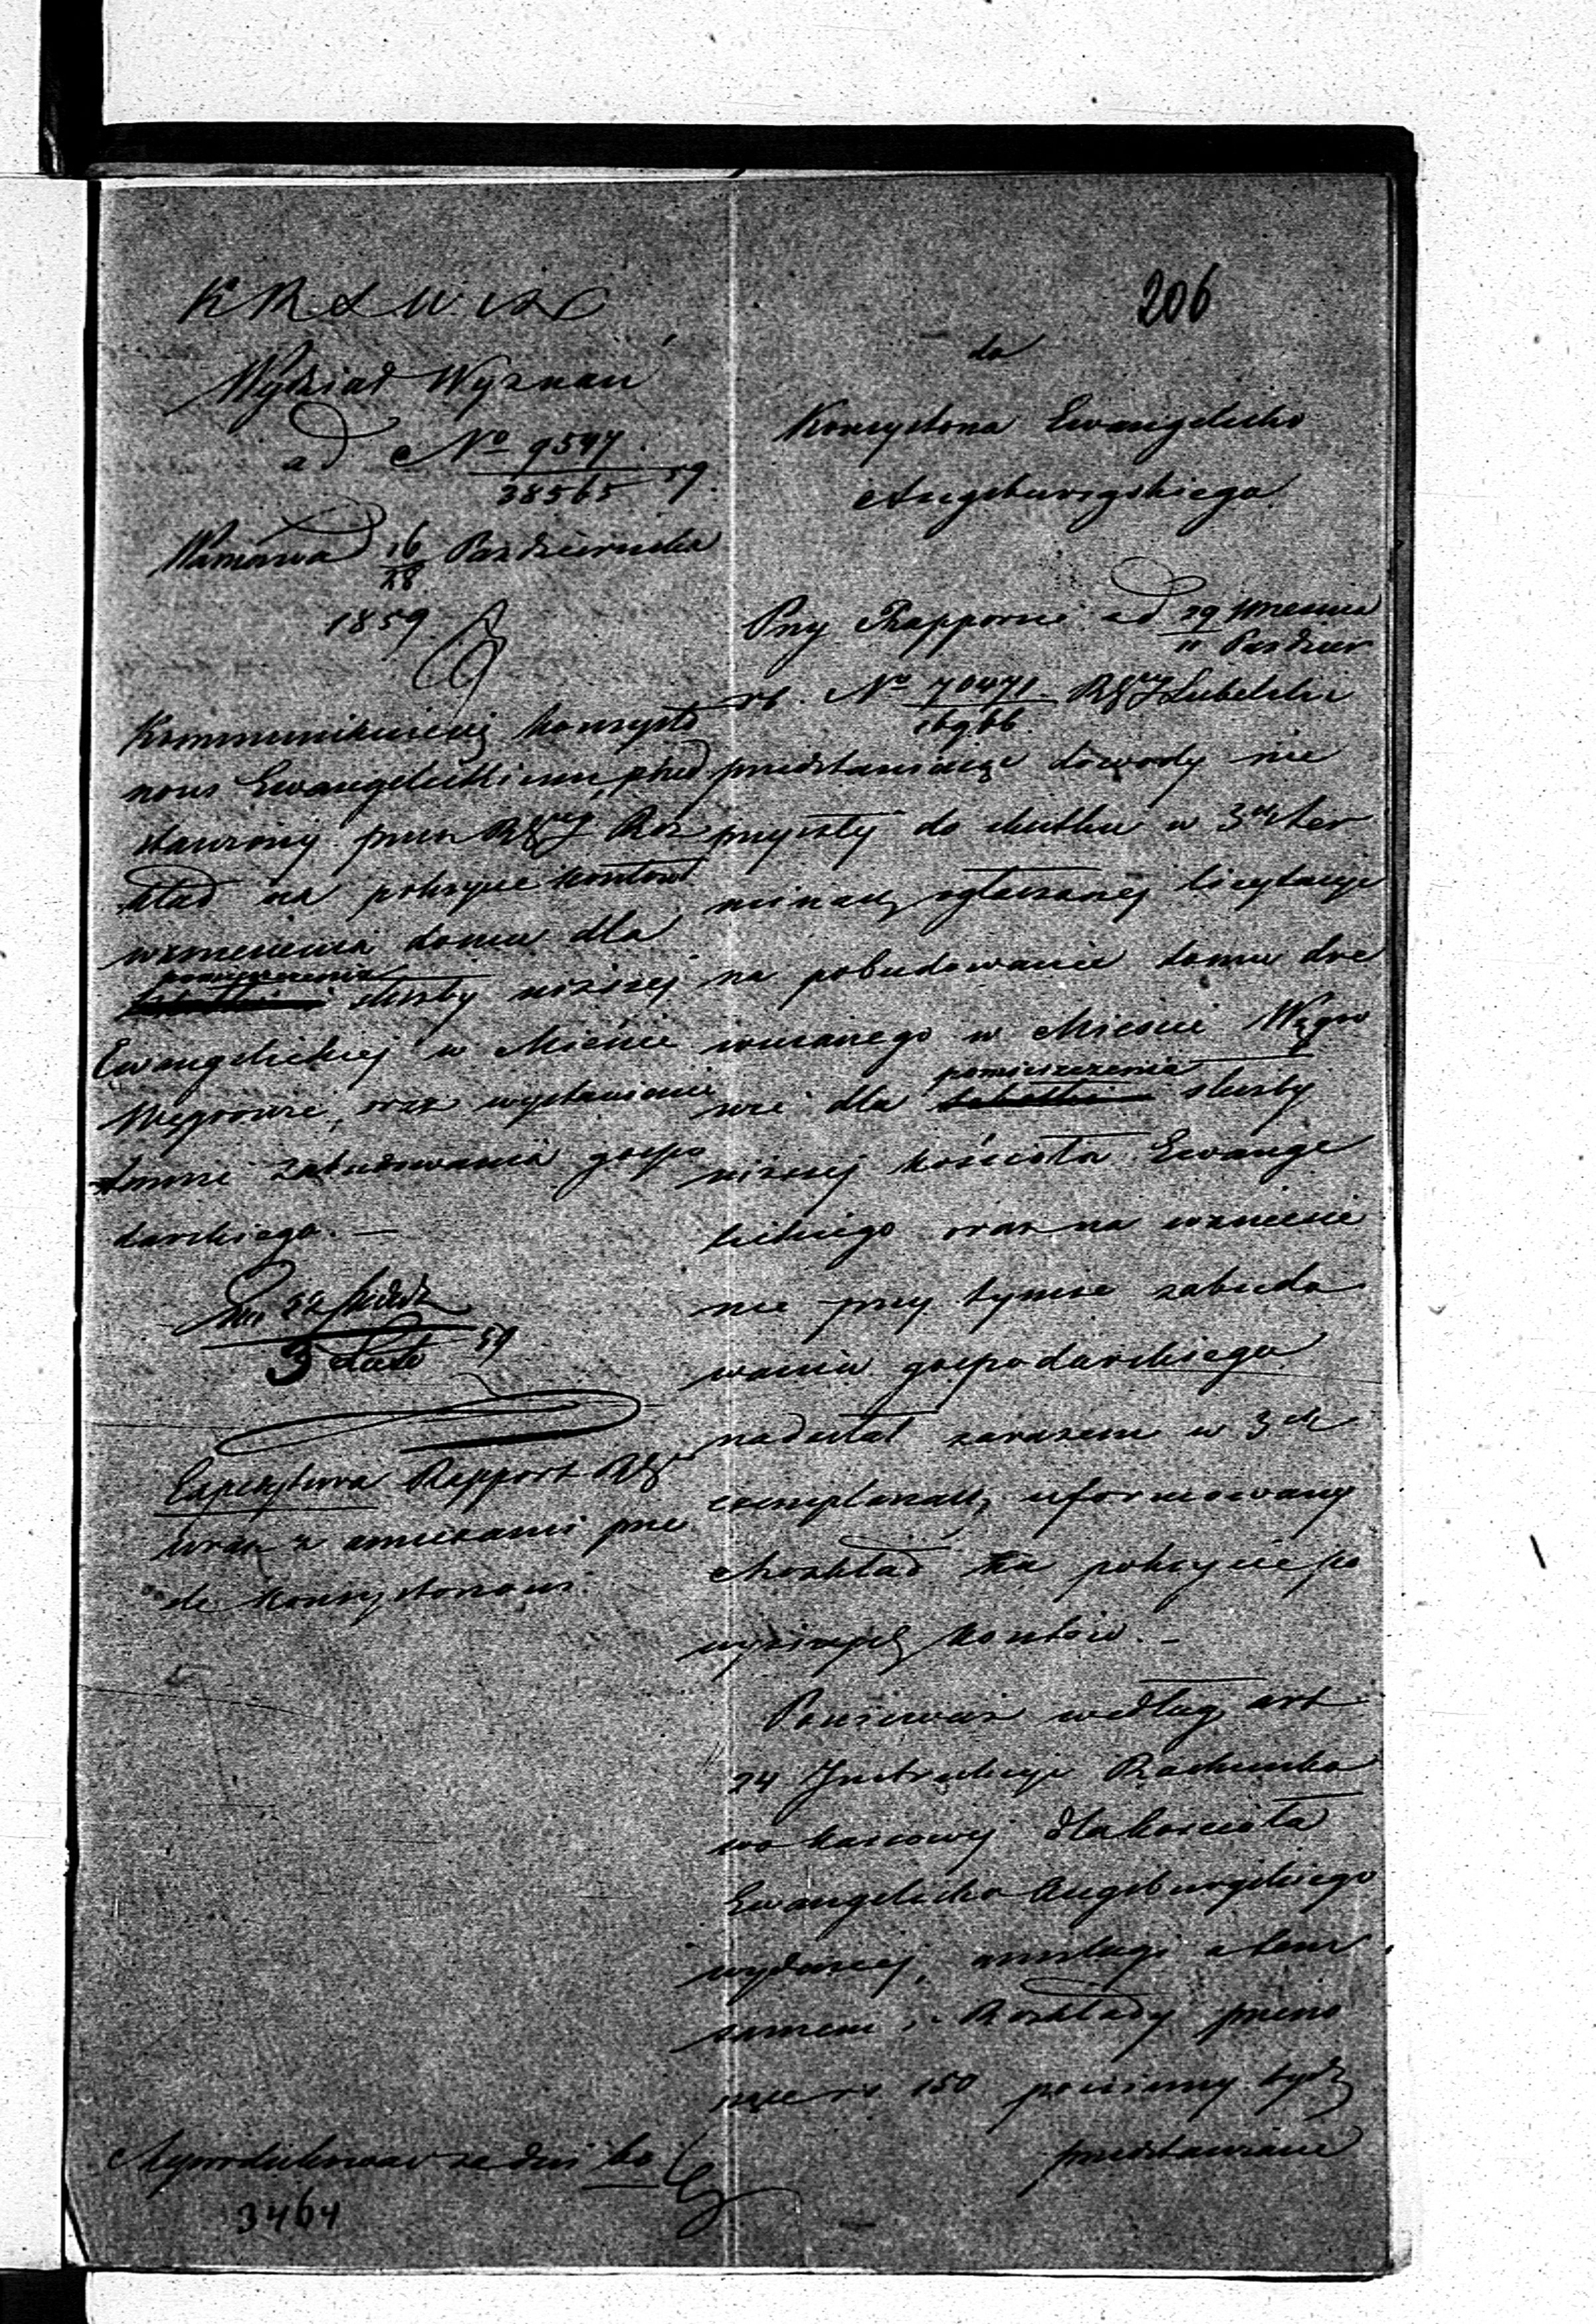 206
K R S W. i D
Wydział Wyznań
ad No 9597
38565 59.
Warszawa 16/28 Października
1859
Kommunikuiesię Konsysto
rzowi Ewangelickiemu, przed
stawiony przez Rząd Roz
kład na pokrycie kosztów
wzniesienia domu dla
pomieszczenia służby niższej
Ewangelickiej w Mieście
Węgrowie, oraz wystawienie
tamże zabudowania gospo
darskiego. —
59
Expedytura Rapport Rz
wraz z annexami prze
śle Konsystorzowi.
3464
do
Konsystorza Ewangelicko
Augsburgskiego
Przy Rapporcie ad 29 Września
11 Paździer
rb. No 70471 Rząd Lubelski
16966
przedstawiając dowody nie
przyszłej do skutku w 3ch ter
minach ogłaszanej licytacyi
na pobudowanie domu dre
wnianego w Mieście Węgro
wie dla pomieszczenia służby
niższej Kościoła Ewange
lickiego oraz na wzniesie
nie przy tymże zabudo
wania gospodarskiego
nadesłał zarazem w 3ch
exemplarzach uformowany
Rozkład na pokrycie po
wyższych kosztów. —
Ponieważ według art
24 Instrukcyi Rachunko
wo kassowej dla Kościoła
Ewangelicko Augsburgskiego
wydanej, anszlagi a tem
samem i Rozkłady przeno
szące rs 150 powinny bydź
przedstawiane